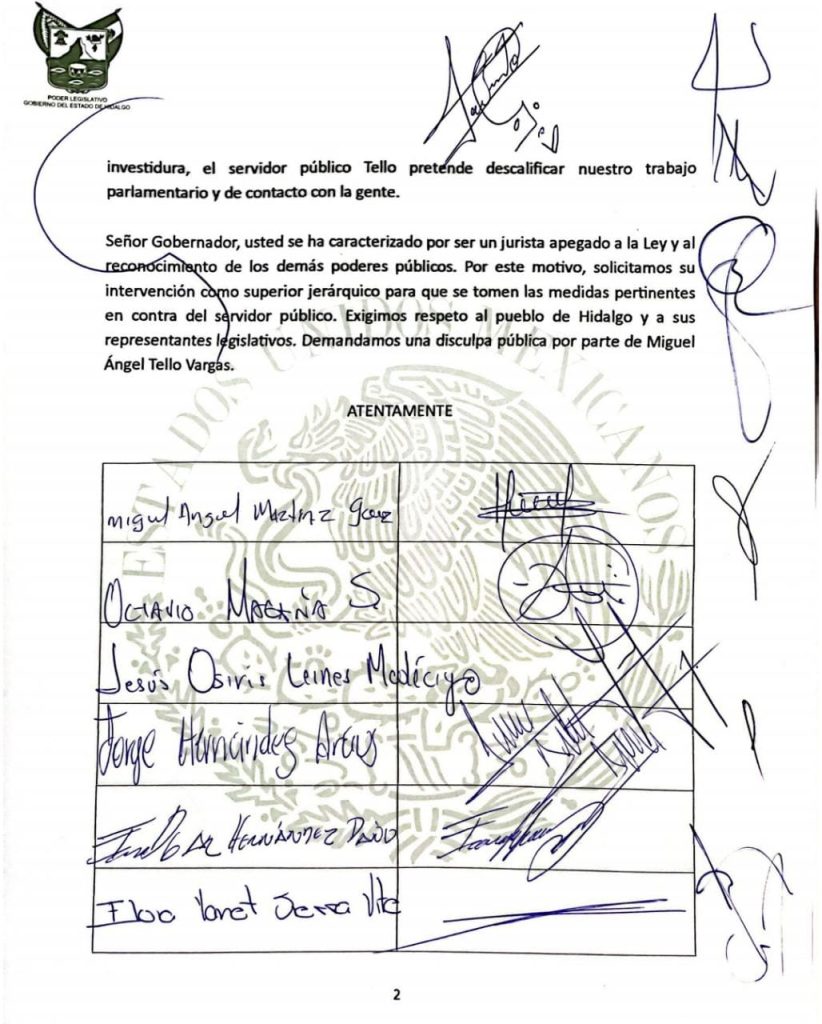 PODER LEGISLATIVO
GOBIERNO DEL ESTADO DE HIDALGO
investidura, el servidor público Tello pretende descalificar nuestro trabajo
parlamentario y de contacto con la gente.
Señor Gobernador, usted se ha caracterizado por ser un jurista apegado a la Ley y al
reconocimiento de los demás poderes públicos. Por este motivo, solicitamos su
intervención como superior jerárquico para que se tomen las medidas pertinentes
en contra del servidor público. Exigimos respeto al pueblo de Hidalgo y a sus
representantes legislativos. Demandamos una disculpa pública por parte de Miguel
Ángel Tello Vargas.
ESTADOS UNIDOS MEXICANOS
ATENTAMENTE
Miguel Angel Martínez
OCTAVIO MAGAÑA S.
Jesús Osiris Leines Medécigo
Jorge Hernández Araus
HERNÁNDEZ
Yanet Serna Vite
2